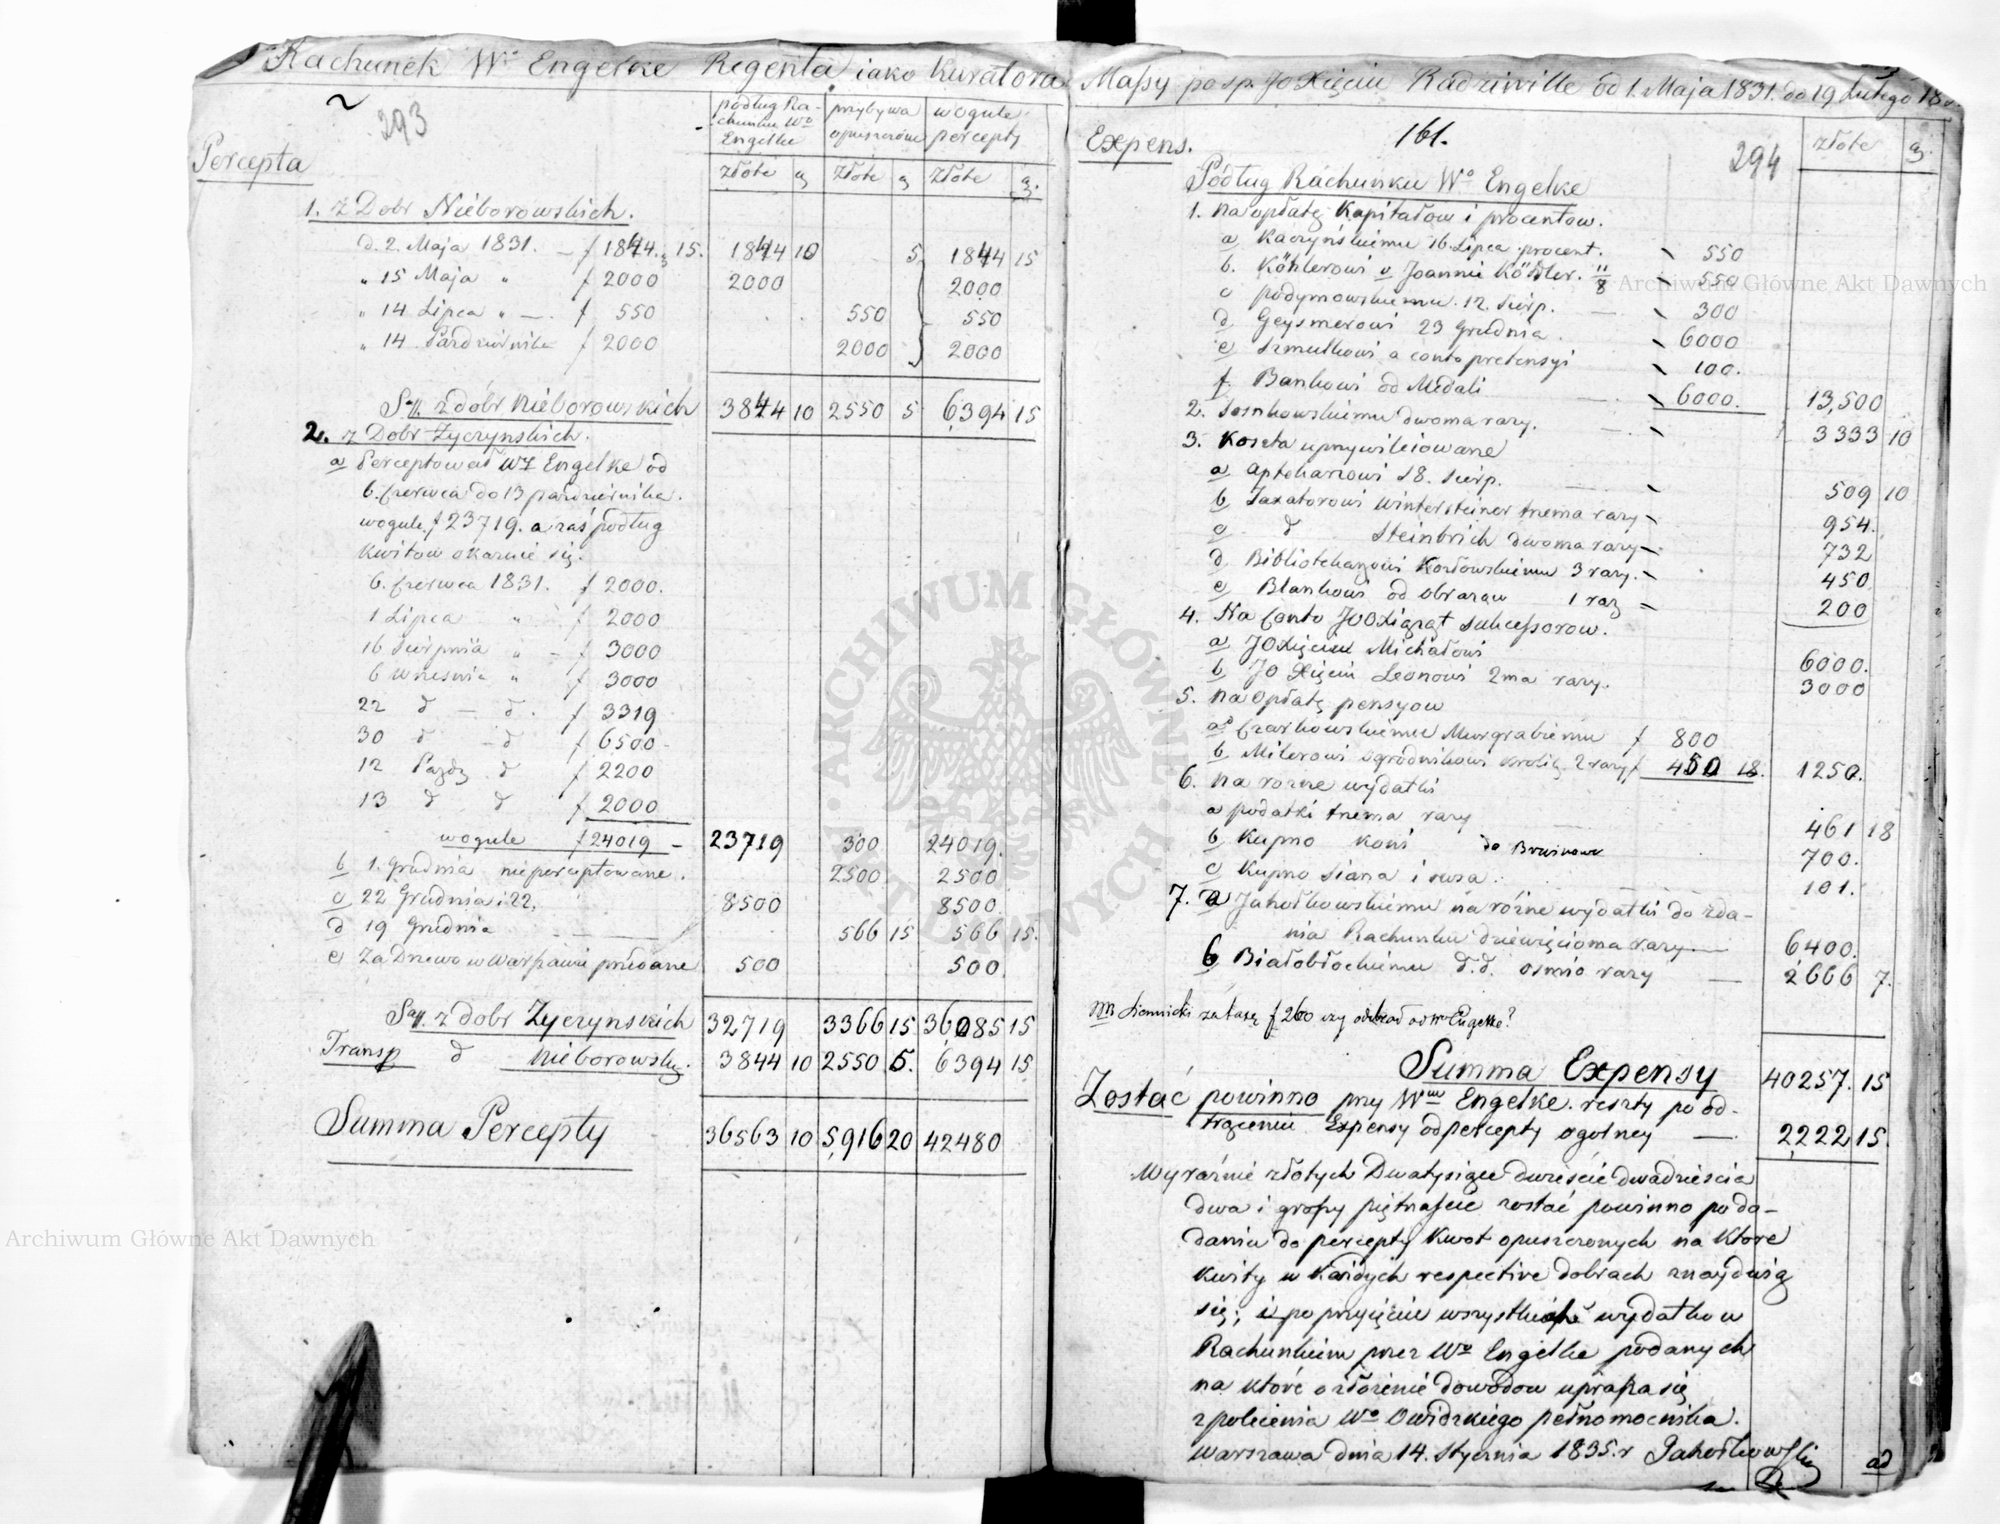 Rachunek Wo Engelke Regenta iako Kuratora Massy po sp. JO Xięciu Radziwille od 1. Maja 1831. do 19 Lutego 18
293
Percepta
podług Ra-
chunku Wo
Engelke
przybywa
opuszczone
wogule
percepty
złote g złote g złote g.
1. z Dobr Nieborowskich.
d. 2. Maja 1831. — f 1844. g 15. 1844 10 5 1844 15
„ 15 Maja „ f 2000 2000 2000
„ 14 Lipca „ — f 550 550 550
„ 14 Października f 2000 2000 2000
Sa z dobr Nieborowskich 3844 10 2550 5 6394 15
2. z Dobr Zyczynskich.
a Perceptował WJ Engelke od
6. Czerwca do 13 października.
wogule f 23719. a zaś podług
Kwitow okazuie się.
6. Czerwca 1831. f 2000.
1 Lipca „ f 2000
16 Sierpnia „ — f 3000
6 Września „ f 3000
22 d — d. f 3319
30 d — d f 6500
12 Pazdz. d f 2200
13 d d f 2000
wogule f 24019 — 23719 300 24019.
b 1. Grudnia nieperceptowane. 2500 2500
c 22 Grudnia i 22, 8500 8500
d 19 Grudnia 566 15 566 15.
e Za Drzewo w Warszawie przedane 500 500
Sa z dobr Zyczynskich 32719 3366 15 36085 15
Transp d Nieborowsk. 3844 10 2550 5. 6394 15
Summa Percepty 36563 10 5,916 20 42480
161.
294
Expens.
złote g.
Podług Rachunku Wo Engelke
1. Na opłatę Kapitałow i procentow.
a Kaczyńskiemu 16 Lipca procent. 550
b. Köhlerowi v Joannie Köhler. 11/8 550
c podymowskiemu 12. Sierp. 300
d Geysmerowi 23 Grudnia. 6000
e Szmulkowi a conto pretensyi 100.
f. Bankowi od Medali 6000. 13,500
2. Sosnkowskiemu dwoma razy. 3333 10
3. Koszta uprzywileiowane
a aptekarzowi 18. Sierp. 509 10
b Taxatorowi Wintersteiner trzema razy 954.
c d Steinbrich dwoma razy 732
d Bibliotekarzowi Kozłowskiemu 3 razy. 450
e Blankowi od obrazow 1 raz 200
4. Na Conto JOOXiążąt Sukcessorow.
a JOXięciu Michałowi 6000.
b JO Xięciu Leonowi 2ma razy. 3000
5. Na opłatę pensyow
a Czarkowskiemu Murgrabiemu f 800
b. Milerowi ogrodnikowi 2 razy f 450 18. 1250.
6. Na rożne wydatki
a podatki trzema razy 461 18
b Kupno koni do 700.
c Kupno siana i owsa. 101.
7. a Jakołkowskiemu na różne wydatki do zda-
nia Rachunku dziewięcioma razy — 6400.
b Białobłockiemu d. d. osmio razy — 2,666 7.
NB Siennicki za taxę f 260 czy odebrał od Wo Engelke?
Summa Expensy 40257. 15
Zostać powinno przy Wm Engelke. reszty po od-
trąceniu Expensy od percepty ogolney — 2,222 15.
Wyraźnie złotych Dwatysiące dwieście dwadzieścia
dwa i groszy piętnaście zostać powinno po do-
daniu do percepty Kwot opuszczonych na Które
Kwity w Każdych respective dobrach znayduią
się; i po przyięciu wszystkich wydatkow
Rachunkiem przez Wo Engelke podanych
na które o złożenie dowodow uprasza się
z polecenia Wo Owidzkiego pełnomocnika.
Warszawa dnia 14. Stycznia 1835. r Jakołkowski
ad
Archiwum Główne Akt Dawnych
Archiwum Główne Akt Dawnych
ARCHIWUM GŁÓWNE AKT DAWNYCH